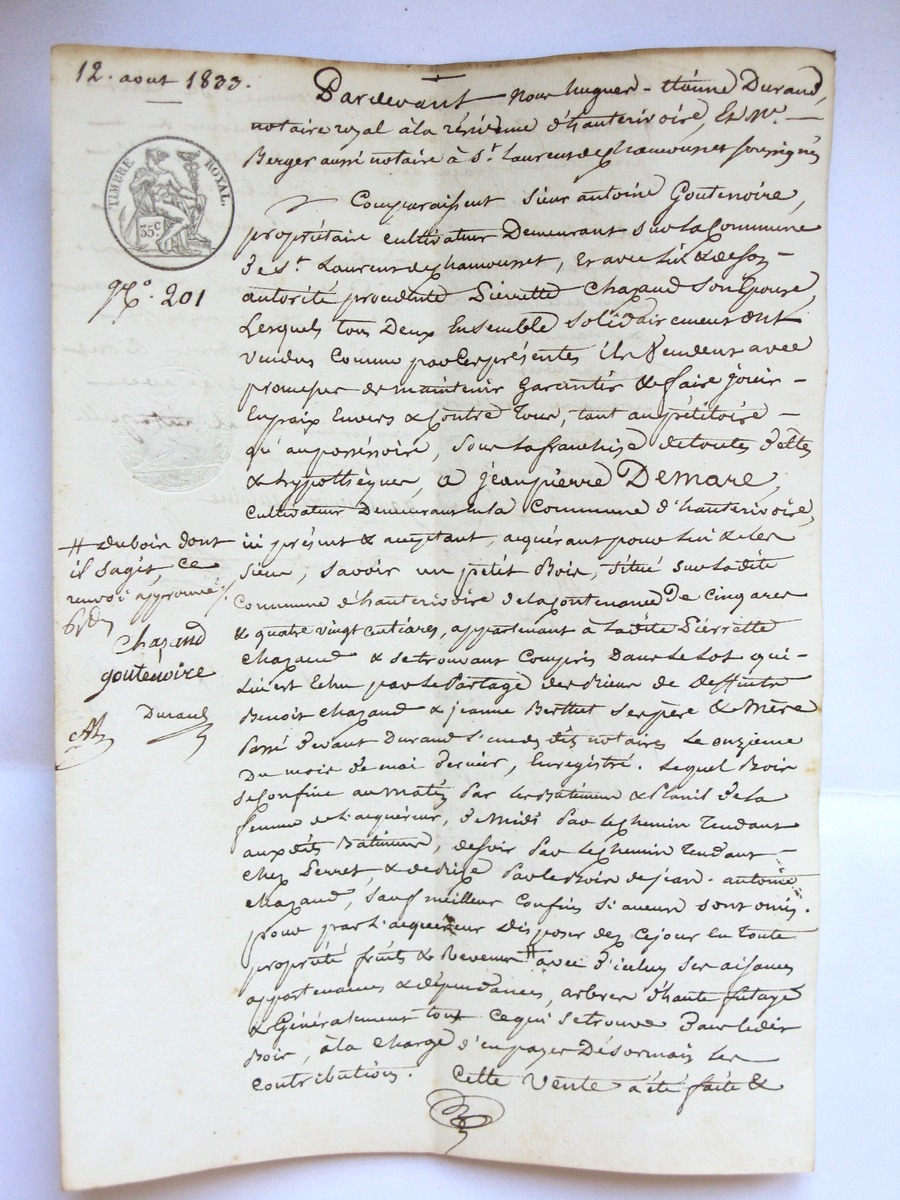 12. aout 1833.
TIMBRE ROYAL.
35c
No. 201
Pardevant nous hugues-étiénne Durand,
notaire royal à la résidence d'hauterivoire, Et Me.
Berger aussi notaire à St. Laurent de Chamousset soussignés
Comparaissent Sieur antoine Goutenoire,
propriétaire cultivateur Demeurant sur la Commune
de St. Laurent de Chamousset, Et avec lui & de son
autorité procédente Pierrette Chazaud son Epouse,
Lesquels tous Deux Ensemble solidairement ont
vendus Comme par les présentes ils Vendent avec
promesse de maintenir garantir & faire jouir
En paix Envers & Contre Tous, tant au pétitoire
qu'au possessoire, sous la franchise de toutes dettes
& hypothèques, a jean pierre Demare,
cultivateur Demeurant en la Commune d'hauterivoire,
ici présent & acceptant, acquérant pour lui & les
siens, savoir un petit Bois, situé sur ladite
Commune d'hauterivoire de la Contenance De cinq ares
& quatre vingt centiares, appartenant à ladite Pierrette
Chazaud & se trouvant Compris Dans le Lot qui
lui est Echu par le Partage des Biens de deffunts
Benoit Chazaud & jeanne Berthet ses père & mère
passé devant Durand l'un desdits notaires Le onzieme
Du mois de mai dernier, Enregistré. Lequel Bois
se Confine au matin Par les Batiments & Plantis de la
femme de l'acquéreur, de midi Par le Chemin Tendant
auxdits Batiments, de soir Par le Chemin Tendant
chez Perret, & de Bise Par le Bois de jean-antoine
Chazaud, sauf meilleurs Confins si aucuns sont omis.
pour par l'acquéreur Disposer dez ce jour En toute
propriété fruits & Revenus # avec d'icelui ses aisances
appartenances & dépendances, arbres d'haute futaye
& Généralement tout ce qui se trouve Dans ledit
Bois, à la charge d'en payer Désormais les
contributions. Cette Vente a été faite &
# du bois dont
il s'agit, ce
renvoi approuvé
Chazaud
goutenoire
Durand